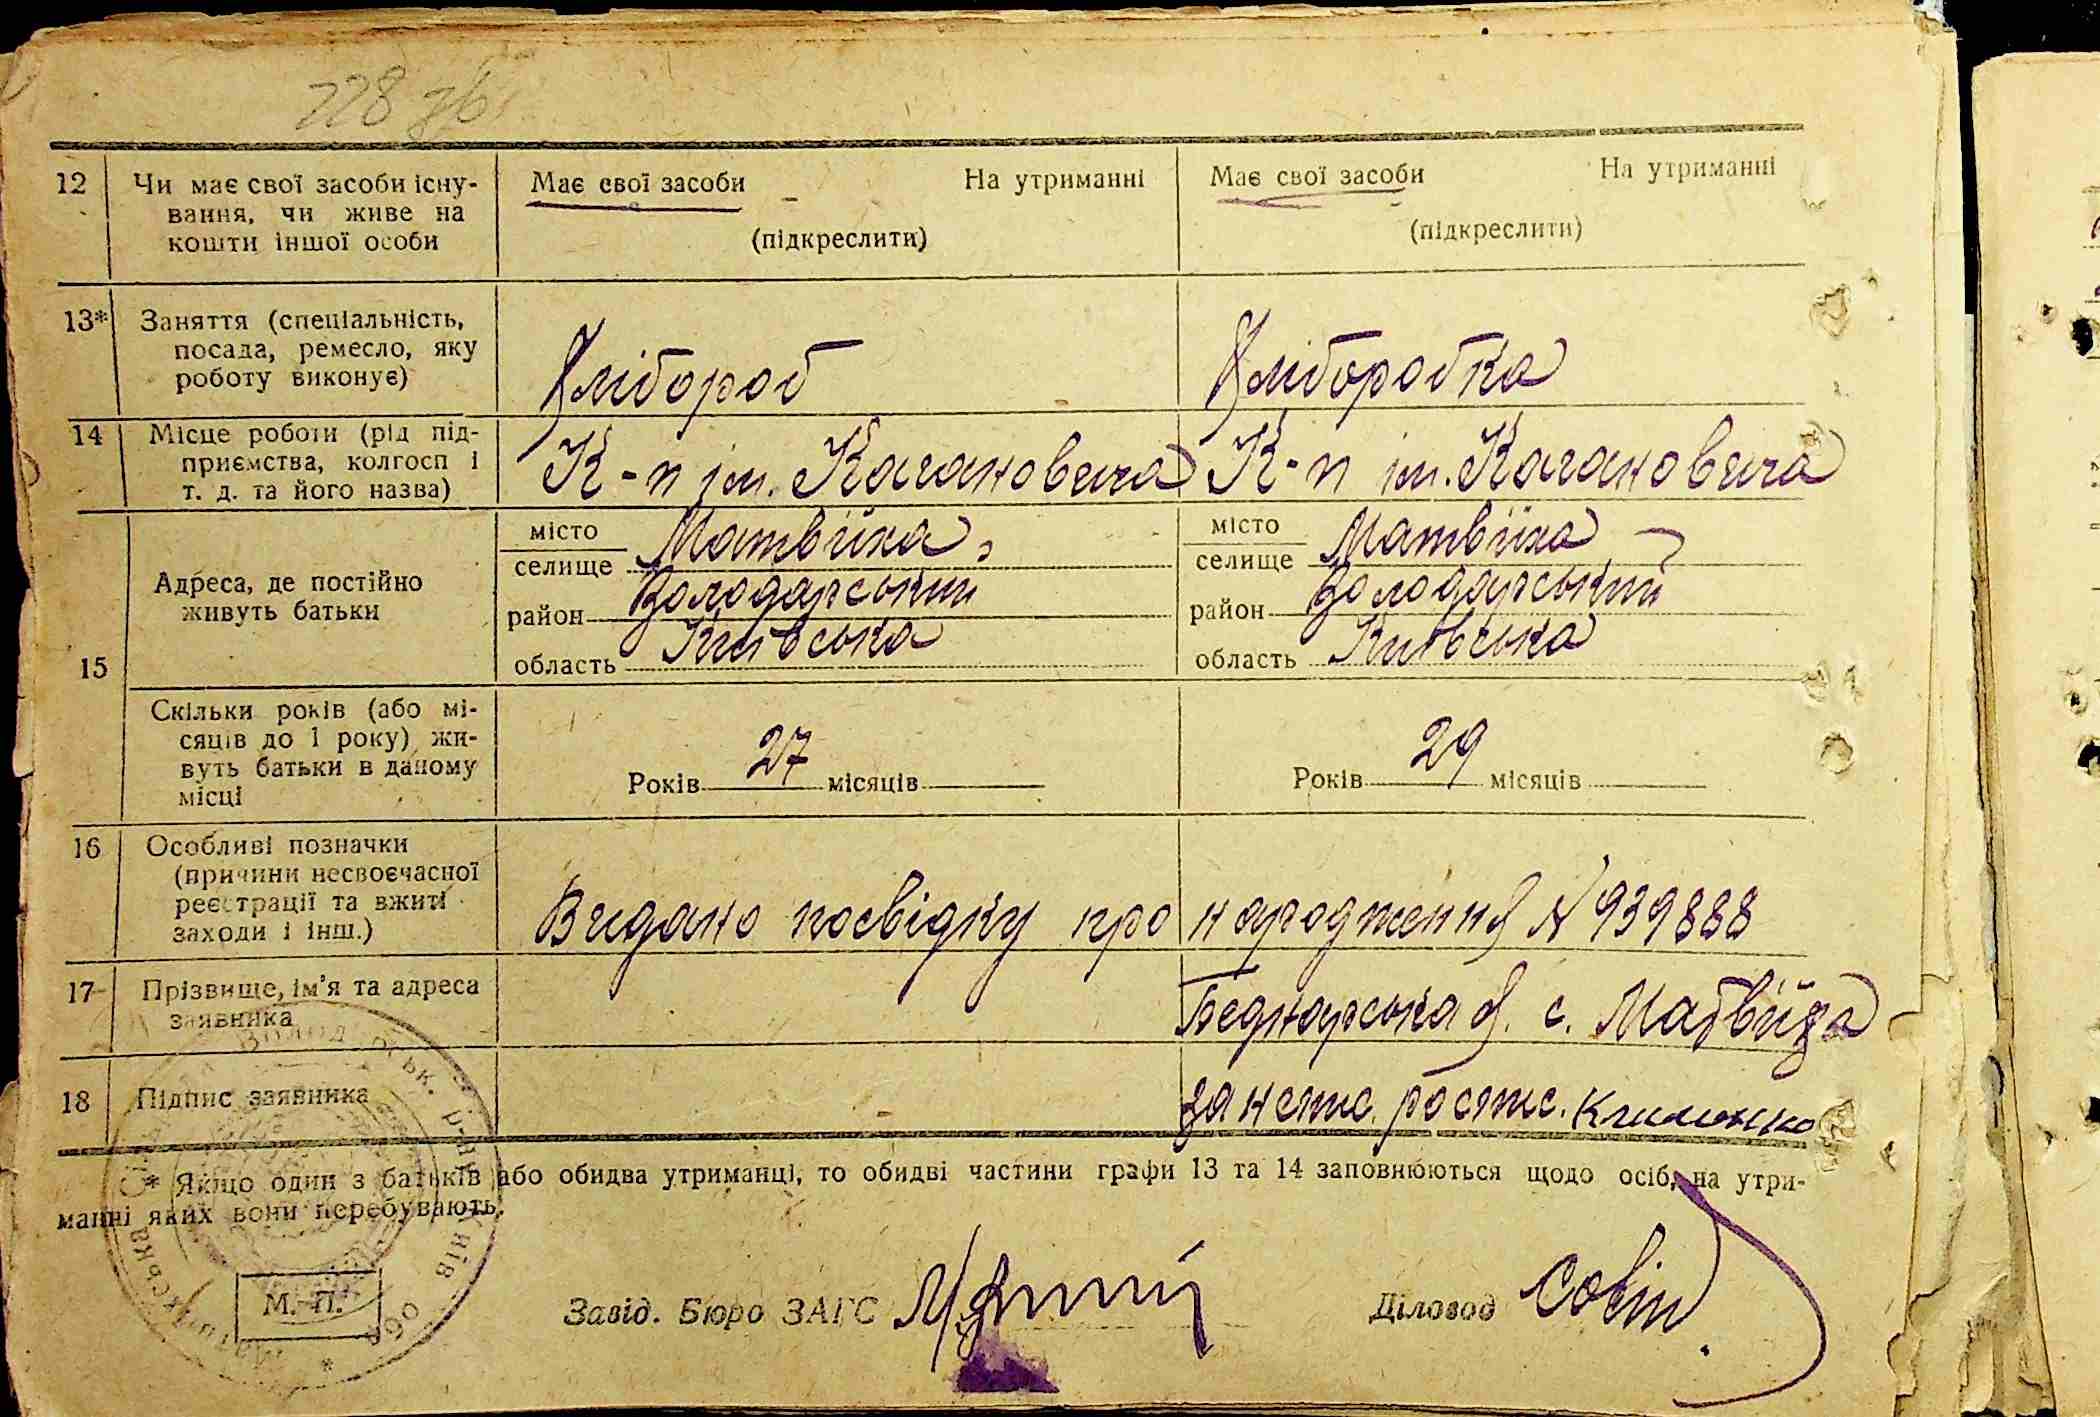 228 зв
12 Чи має свої засоби існу- Має свої засоби На утриманні Має свої засоби На утриманні
вання, чи живе на
кошти іншої особи (підкреслити) (підкреслити)
13* Заняття (спеціальність,
посада, ремесло, яку
роботу виконує) Хлібороб Хлібoробка
14 Місце роботи (рід під-
приємства, колгосп і К-п ім. Кагановича К-п ім. Кагановича
т. д. та його назва)
15 Адреса, де постійно
живуть батьки
місто
селище Матвіїха місто
селище Матвіїха
район Володарський район Володарський
область Київська область Київська
Скільки років (або мі-
сяців до 1 року) жи-
вуть батьки в даному
місці
Років 27 місяців Років 29 місяців
16 Особливі позначки
(причини несвоєчасної
реєстрації та вжиті
заходи і інш.)
Видано посвідку про народження № 939888
17 Прізвище, ім'я та адреса
заявника
Беднарська Я. с. Матвіїха
18 Підпис заявника
за непис. розпис.
* Якщо один з батьків або обидва утриманці, то обидві частини графи 13 та 14 заповнюються щодо осіб, на утри-
манні яких вони перебувають.
М. П.
Завід. Бюро ЗАГС Діловод